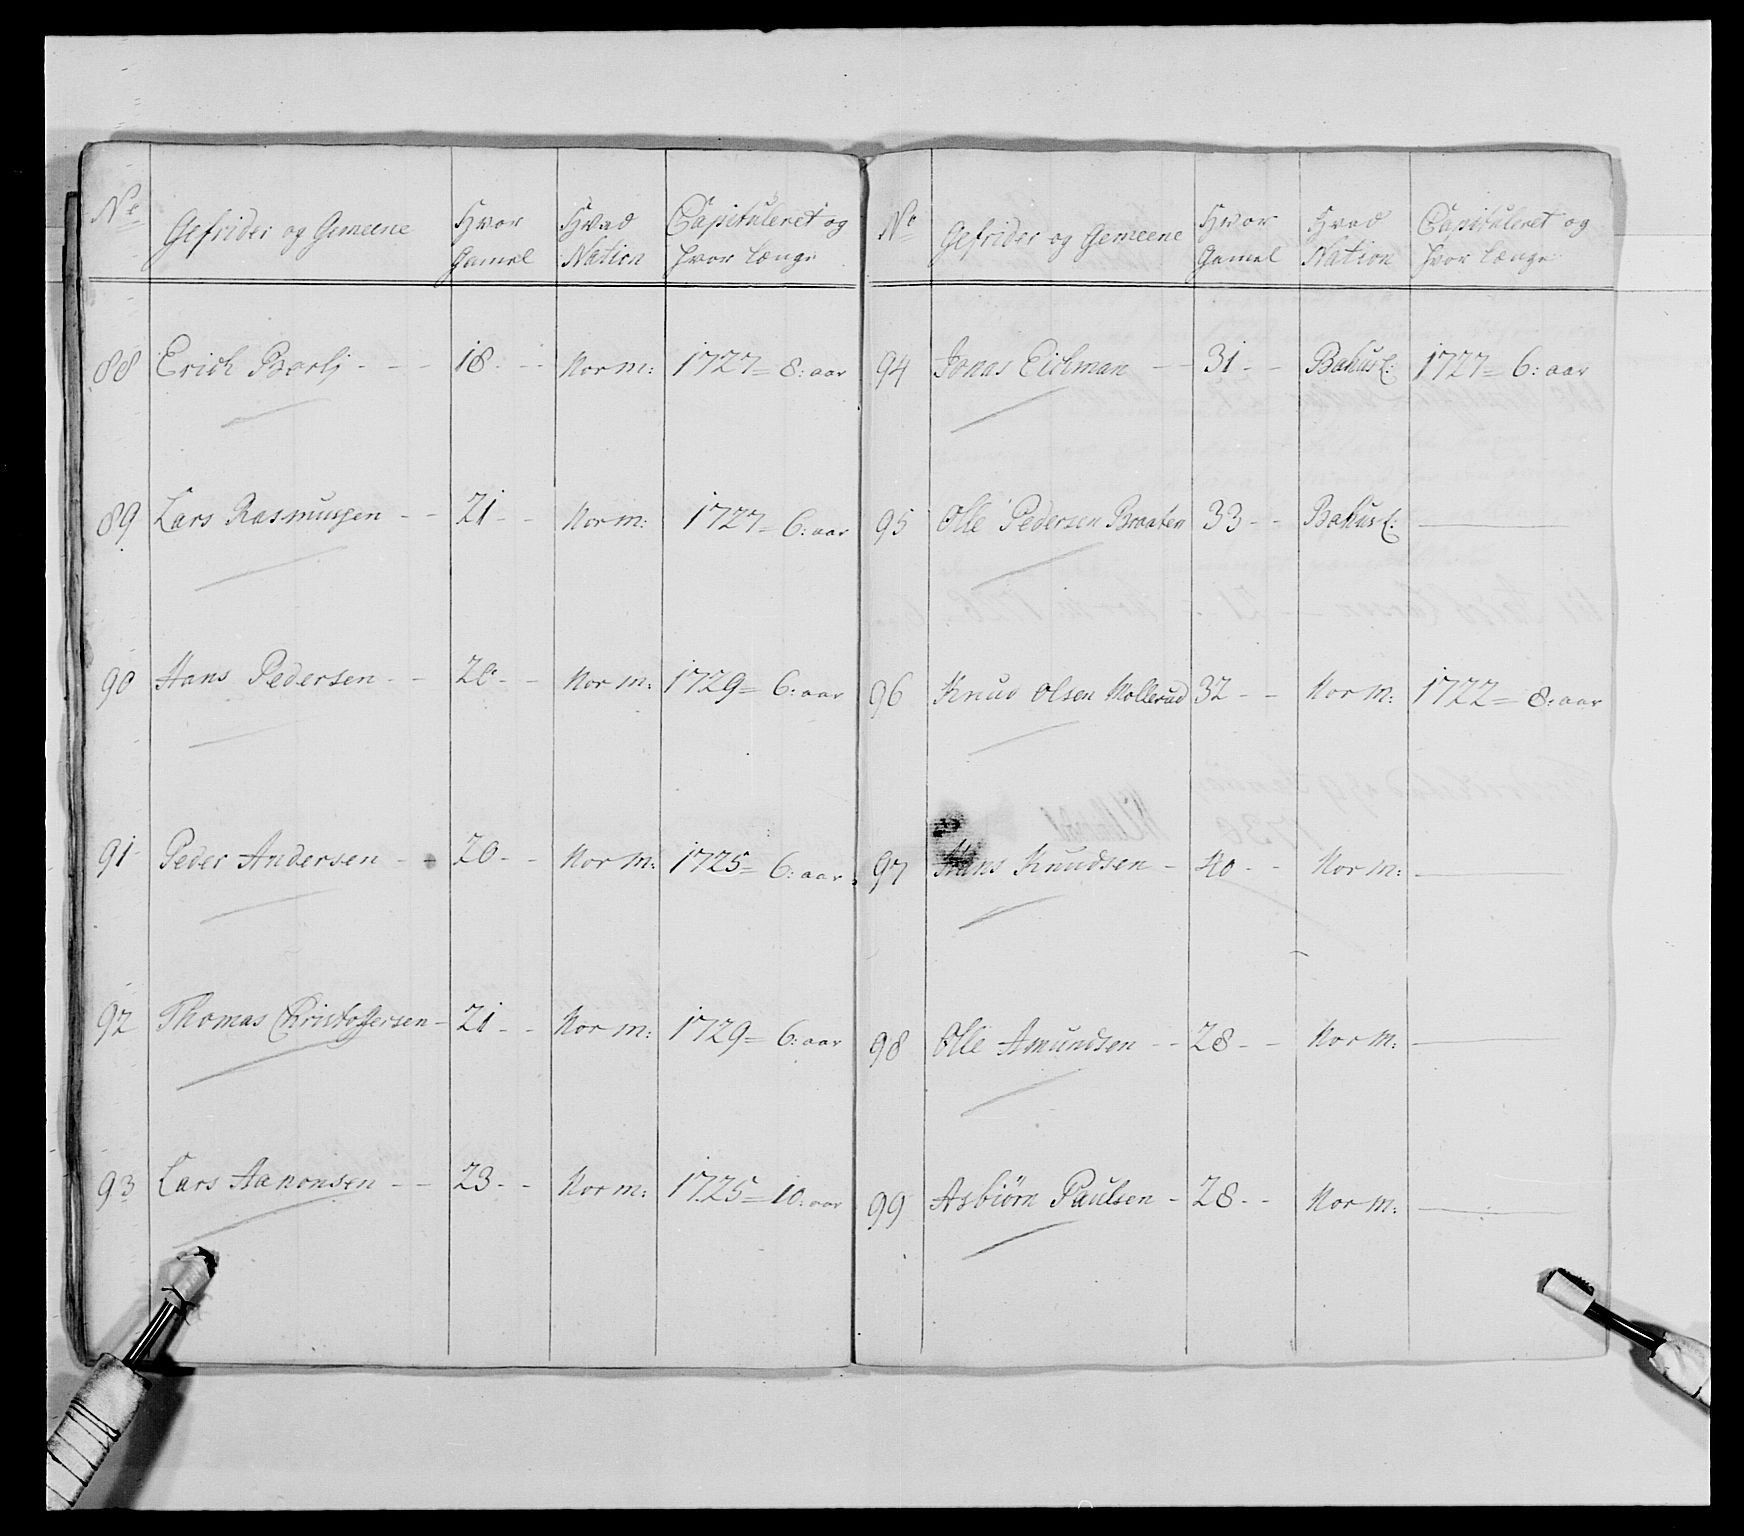 No Gefrider og Gemeene Hvor Gamel Hvad Nation Capituleret og hvor længe
88 Erich Borli - - - 18 - - Norm: 1727 = 8: aar
89 Lars Rasmussen - - 21 - - Norm: 1727 = 6: aar
90 Hans Pedersen - - 20 - - Norm: 1729 = 6: aar
91 Peder Andersen - - 20 - - Norm: 1725 = 6: aar
92 Thomas Christoffersen - 21 - - Norm: 1729 = 6: aar
93 Lars Aanonsen - - 23 - - Norm: 1725 = 10: aar
No Gefrider og Gemeene Hvor Gamel Hvad Nation Capituleret og hvor længe
94 Jonas Eichman - - 31 - - Bahusl: 1727 = 6: aar
95 Olle Pedersen Braaten 33 - - Bahusl: ———
96 Knud Olsen Mollerud 32 - - Norm: 1722 = 8: aar
97 Hans Knudsen - 40 - - Norm: ———
98 Olle Amundsen - - 28 - - Norm: ———
99 Asbiörn Paulsen - 28 - - Norm: ———